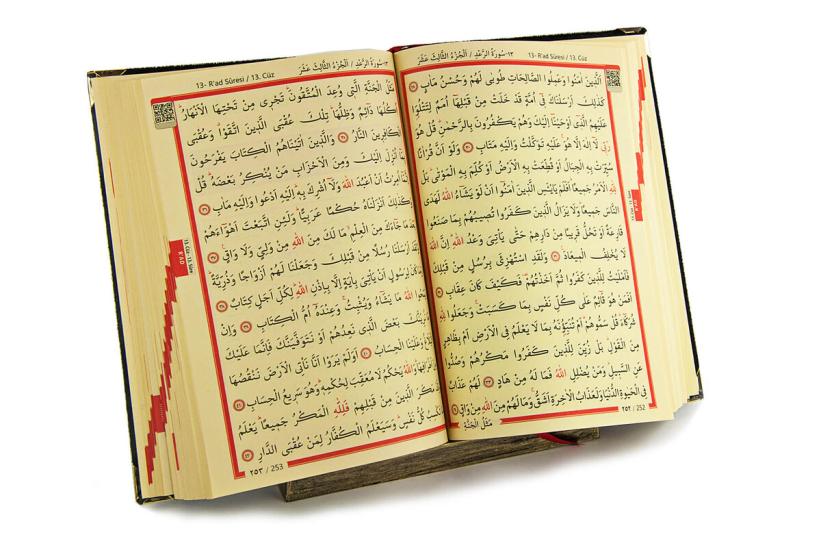 ١٣-سُورَةُ الرَّعْدِ / اَلْجُزْءُ الثَّالِثَ عَشَرَ 13- R'ad Sûresi / 13. Cüz
اَلَّذِينَ اٰمَنُوا وَعَمِلُوا الصَّالِحَاتِ طُوبٰى لَهُمْ وَحُسْنُ مَاٰبٍ ٢٩
كَذٰلِكَ اَرْسَلْنَاكَ فِى اُمَّةٍ قَدْ خَلَتْ مِنْ قَبْلِهَا اُمَمٌ لِتَتْلُوَا
عَلَيْهِمُ الَّذِى اَوْحَيْنَا اِلَيْكَ وَهُمْ يَكْفُرُونَ بِالرَّحْمٰنِ قُلْ هُوَ
رَبِّى لَا اِلٰهَ اِلَّا هُوَ عَلَيْهِ تَوَكَّلْتُ وَاِلَيْهِ مَتَابِ ٣٠ وَلَوْ اَنَّ قُرْاٰنًا
سُيِّرَتْ بِهِ الْجِبَالُ اَوْ قُطِّعَتْ بِهِ الْاَرْضُ اَوْ كُلِّمَ بِهِ الْمَوْتٰى بَلْ
لِلّٰهِ الْاَمْرُ جَمِيعًا اَفَلَمْ يَايْـَٔسِ الَّذِينَ اٰمَنُوا اَنْ لَوْ يَشَاءُ اللّٰهُ لَهَدَى
النَّاسَ جَمِيعًا وَلَا يَزَالُ الَّذِينَ كَفَرُوا تُصِيبُهُمْ بِمَا صَنَعُوا
قَارِعَةٌ اَوْ تَحُلُّ قَرِيبًا مِنْ دَارِهِمْ حَتّٰى يَاْتِىَ وَعْدُ اللّٰهِ اِنَّ اللّٰهَ
لَا يُخْلِفُ الْمِيعَادَ ٣١ وَلَقَدِ اسْتُهْزِئَ بِرُسُلٍ مِنْ قَبْلِكَ
فَاَمْلَيْتُ لِلَّذِينَ كَفَرُوا ثُمَّ اَخَذْتُهُمْ فَكَيْفَ كَانَ عِقَابِ ٣٢
اَفَمَنْ هُوَ قَائِمٌ عَلٰى كُلِّ نَفْسٍ بِمَا كَسَبَتْ وَجَعَلُوا لِلّٰهِ
شُرَكَاءَ قُلْ سَمُّوهُمْ اَمْ تُنَبِّؤُنَهُ بِمَا لَا يَعْلَمُ فِى الْاَرْضِ اَمْ بِظَاهِرٍ
مِنَ الْقَوْلِ بَلْ زُيِّنَ لِلَّذِينَ كَفَرُوا مَكْرُهُمْ وَصُدُّوا
عَنِ السَّبِيلِ وَمَنْ يُضْلِلِ اللّٰهُ فَمَا لَهُ مِنْ هَادٍ ٣٣ لَهُمْ عَذَابٌ
فِى الْحَيٰوةِ الدُّنْيَا وَلَعَذَابُ الْاٰخِرَةِ اَشَقُّ وَمَا لَهُمْ مِنَ اللّٰهِ مِنْ وَاقٍ ٣٤
مَثَلُ الْجَنَّةِ
٢٥٢ / 252
13- R'ad Sûresi / 13. Cüz ١٣-سُورَةُ الرَّعْدِ / اَلْجُزْءُ الثَّالِثَ عَشَرَ
مَثَلُ الْجَنَّةِ الَّتِى وُعِدَ الْمُتَّقُونَ تَجْرِى مِنْ تَحْتِهَا الْاَنْهَارُ
اُكُلُهَا دَائِمٌ وَظِلُّهَا تِلْكَ عُقْبَى الَّذِينَ اتَّقَوْا وَعُقْبَى
الْكَافِرِينَ النَّارُ ٣٥ وَالَّذِينَ اٰتَيْنَاهُمُ الْكِتَابَ يَفْرَحُونَ
بِمَا اُنْزِلَ اِلَيْكَ وَمِنَ الْاَحْزَابِ مَنْ يُنْكِرُ بَعْضَهُ قُلْ
اِنَّمَا اُمِرْتُ اَنْ اَعْبُدَ اللّٰهَ وَلَا اُشْرِكَ بِهِ اِلَيْهِ اَدْعُوا وَاِلَيْهِ مَاٰبِ ٣٦
وَكَذٰلِكَ اَنْزَلْنَاهُ حُكْمًا عَرَبِيًّا وَلَئِنِ اتَّبَعْتَ اَهْوَاءَهُمْ
بَعْدَ مَا جَاءَكَ مِنَ الْعِلْمِ مَا لَكَ مِنَ اللّٰهِ مِنْ وَلِىٍّ وَلَا وَاقٍ ٣٧
وَلَقَدْ اَرْسَلْنَا رُسُلًا مِنْ قَبْلِكَ وَجَعَلْنَا لَهُمْ اَزْوَاجًا وَذُرِّيَّةً
وَمَا كَانَ لِرَسُولٍ اَنْ يَاْتِىَ بِاٰيَةٍ اِلَّا بِاِذْنِ اللّٰهِ لِكُلِّ اَجَلٍ كِتَابٌ ٣٨
يَمْحُوا اللّٰهُ مَا يَشَاءُ وَيُثْبِتُ وَعِنْدَهُ اُمُّ الْكِتَابِ ٣٩ وَاِنْ
مَا نُرِيَنَّكَ بَعْضَ الَّذِى نَعِدُهُمْ اَوْ نَتَوَفَّيَنَّكَ فَاِنَّمَا عَلَيْكَ
الْبَلَاغُ وَعَلَيْنَا الْحِسَابُ ٤٠ اَوَلَمْ يَرَوْا اَنَّا نَاْتِى الْاَرْضَ نَنْقُصُهَا
مِنْ اَطْرَافِهَا وَاللّٰهُ يَحْكُمُ لَا مُعَقِّبَ لِحُكْمِهِ وَهُوَ سَرِيعُ الْحِسَابِ ٤١
وَقَدْ مَكَرَ الَّذِينَ مِنْ قَبْلِهِمْ فَلِلّٰهِ الْمَكْرُ جَمِيعًا يَعْلَمُ
مَا تَكْسِبُ كُلُّ نَفْسٍ وَسَيَعْلَمُ الْكُفَّارُ لِمَنْ عُقْبَى الدَّارِ ٤٢
٢٥٣ / 253